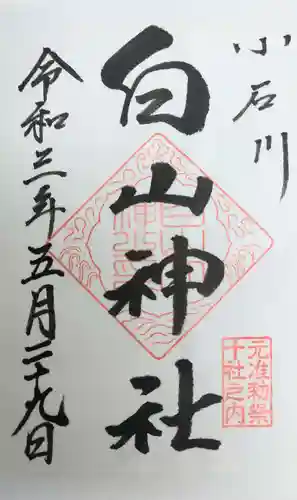 小石川
白山神社
令和三年五月二十九日
元准勅祭
十社之内